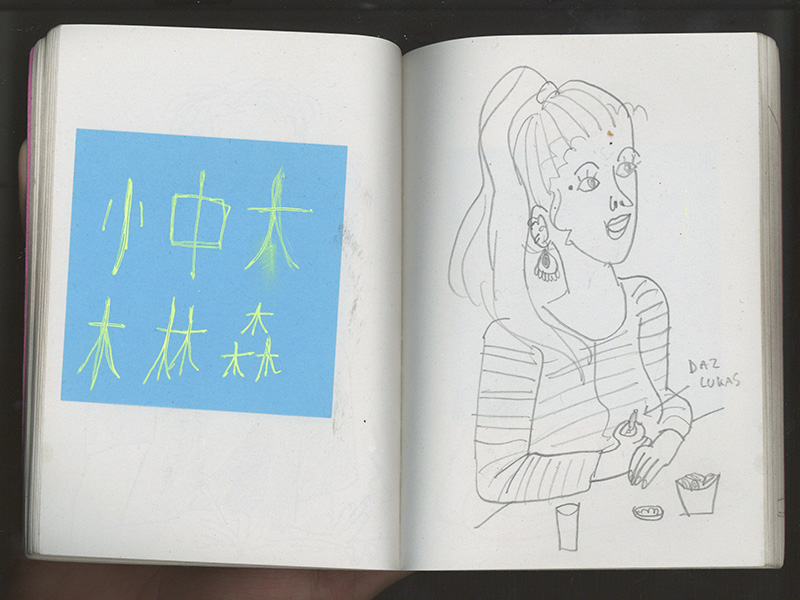 小中大
木林森
DAZ
LUKAS